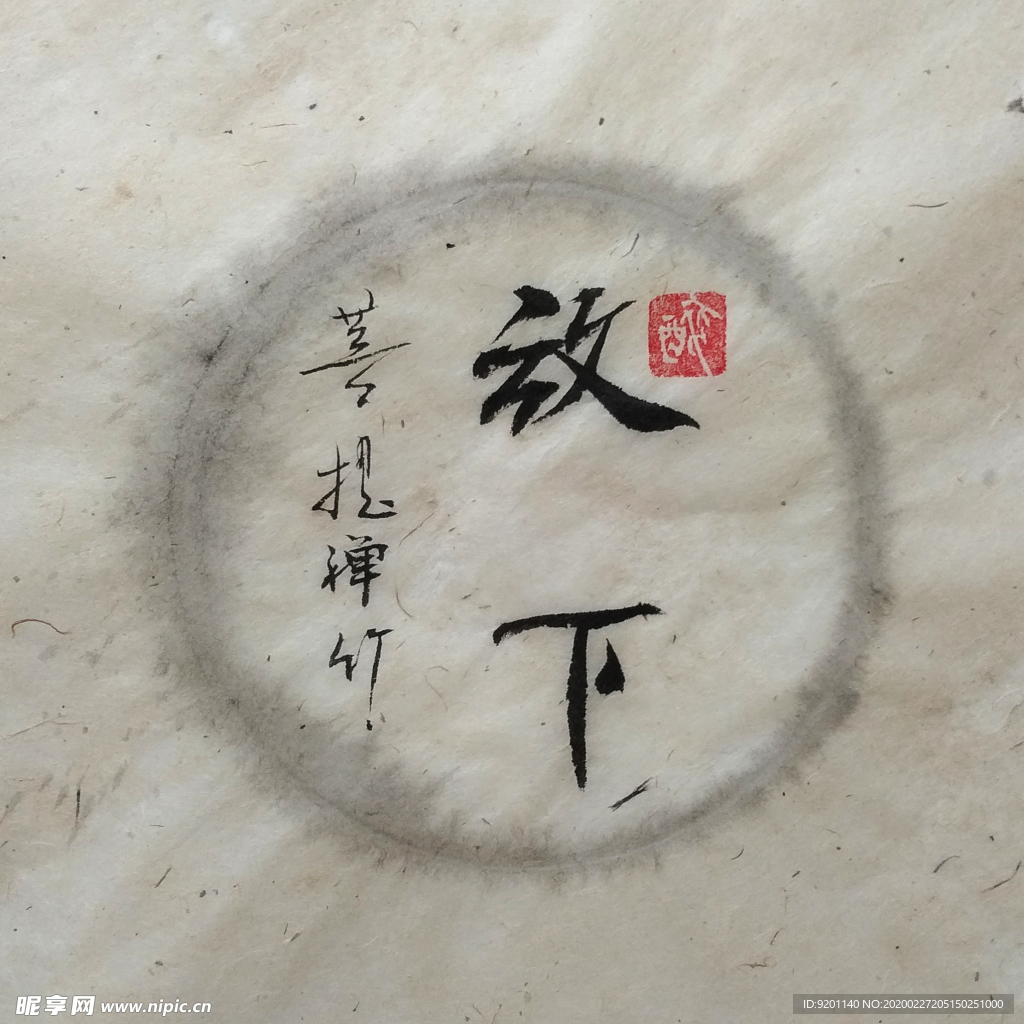 放下
菩提禅竹
醉
昵享网 www.nipic.cn
ID:9201140 NO:20200227205150251000